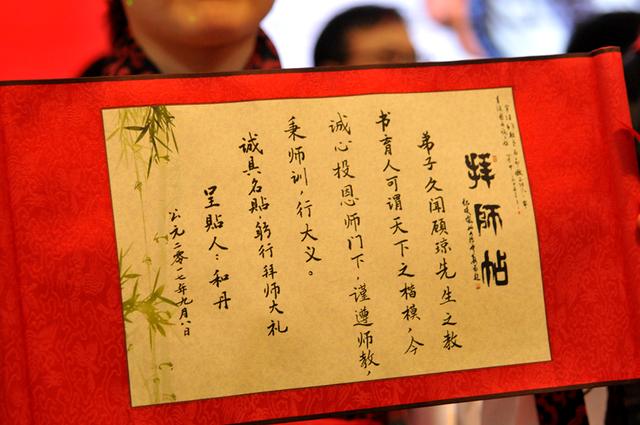 拜師帖
弟子久闻顾琼先生之教
书育人可谓天下之楷模，今
诚心投恩师门下，谨遵师教，
秉师训，行大义。
诚具名贴，躬行拜师大礼
呈贴人：和丹
公元二零一七年九月八日